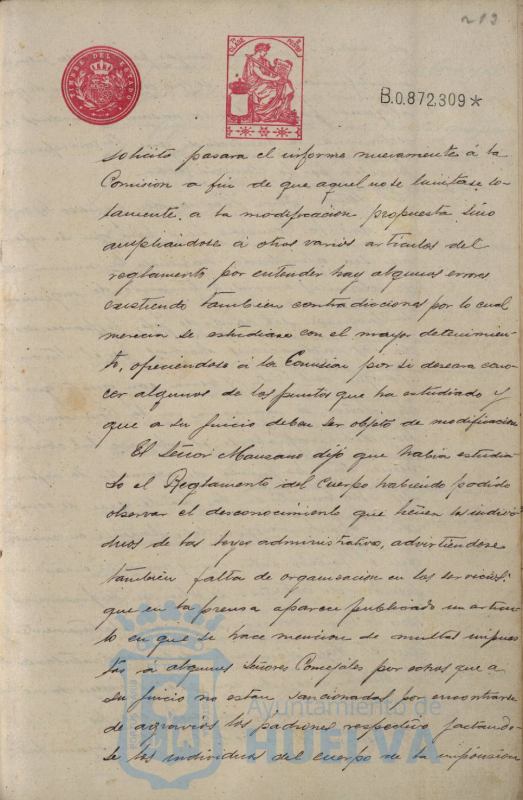 213
TIMBRE DEL ESTADO
7ª CLASE
B.0.872,309*
solicitó pasara el informe nuevamente á la
Comision a fin de que aquel no se limitase so-
lamente á la modificación propuesta sino
ampliandose á otros varios artículos del
reglamento por entender hay algunos errores
existiendo tambien contradicciones por lo cual
merecia se estudiase con el mayor detenimien-
to, ofreciendose á la Comision por si deseara cono-
cer algunos de los puntos que ha estudiado y
que a su juicio deban ser objeto de modificacion
El Señor Manzano dijo que habia estudia-
do el Reglamento del Cuerpo habiendo podido
observar el desconocimiento que tienen los indivi-
duos de las leyes administrativa, advirtiendose
tambien falta de organizacion en los servicios:
que en la prensa aparece publicado un artícu-
lo en que se hace mencion de multas impues-
tas á algunos Señores Concejales por echos que a
su juicio no estan sancionados por encontrarse
de agravios los padrones respectivo jactando-
se los individuos del cuerpo de la imposicion
Ayuntamiento de
HUELVA